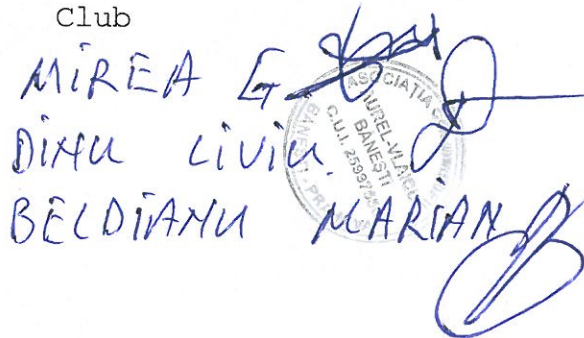 Club
MIREA G.
DINU LIVIU
BELDIANU MARIAN
ASOCIAȚIA
AUREL-VLAICU
BANEȘTI
C.U.I.